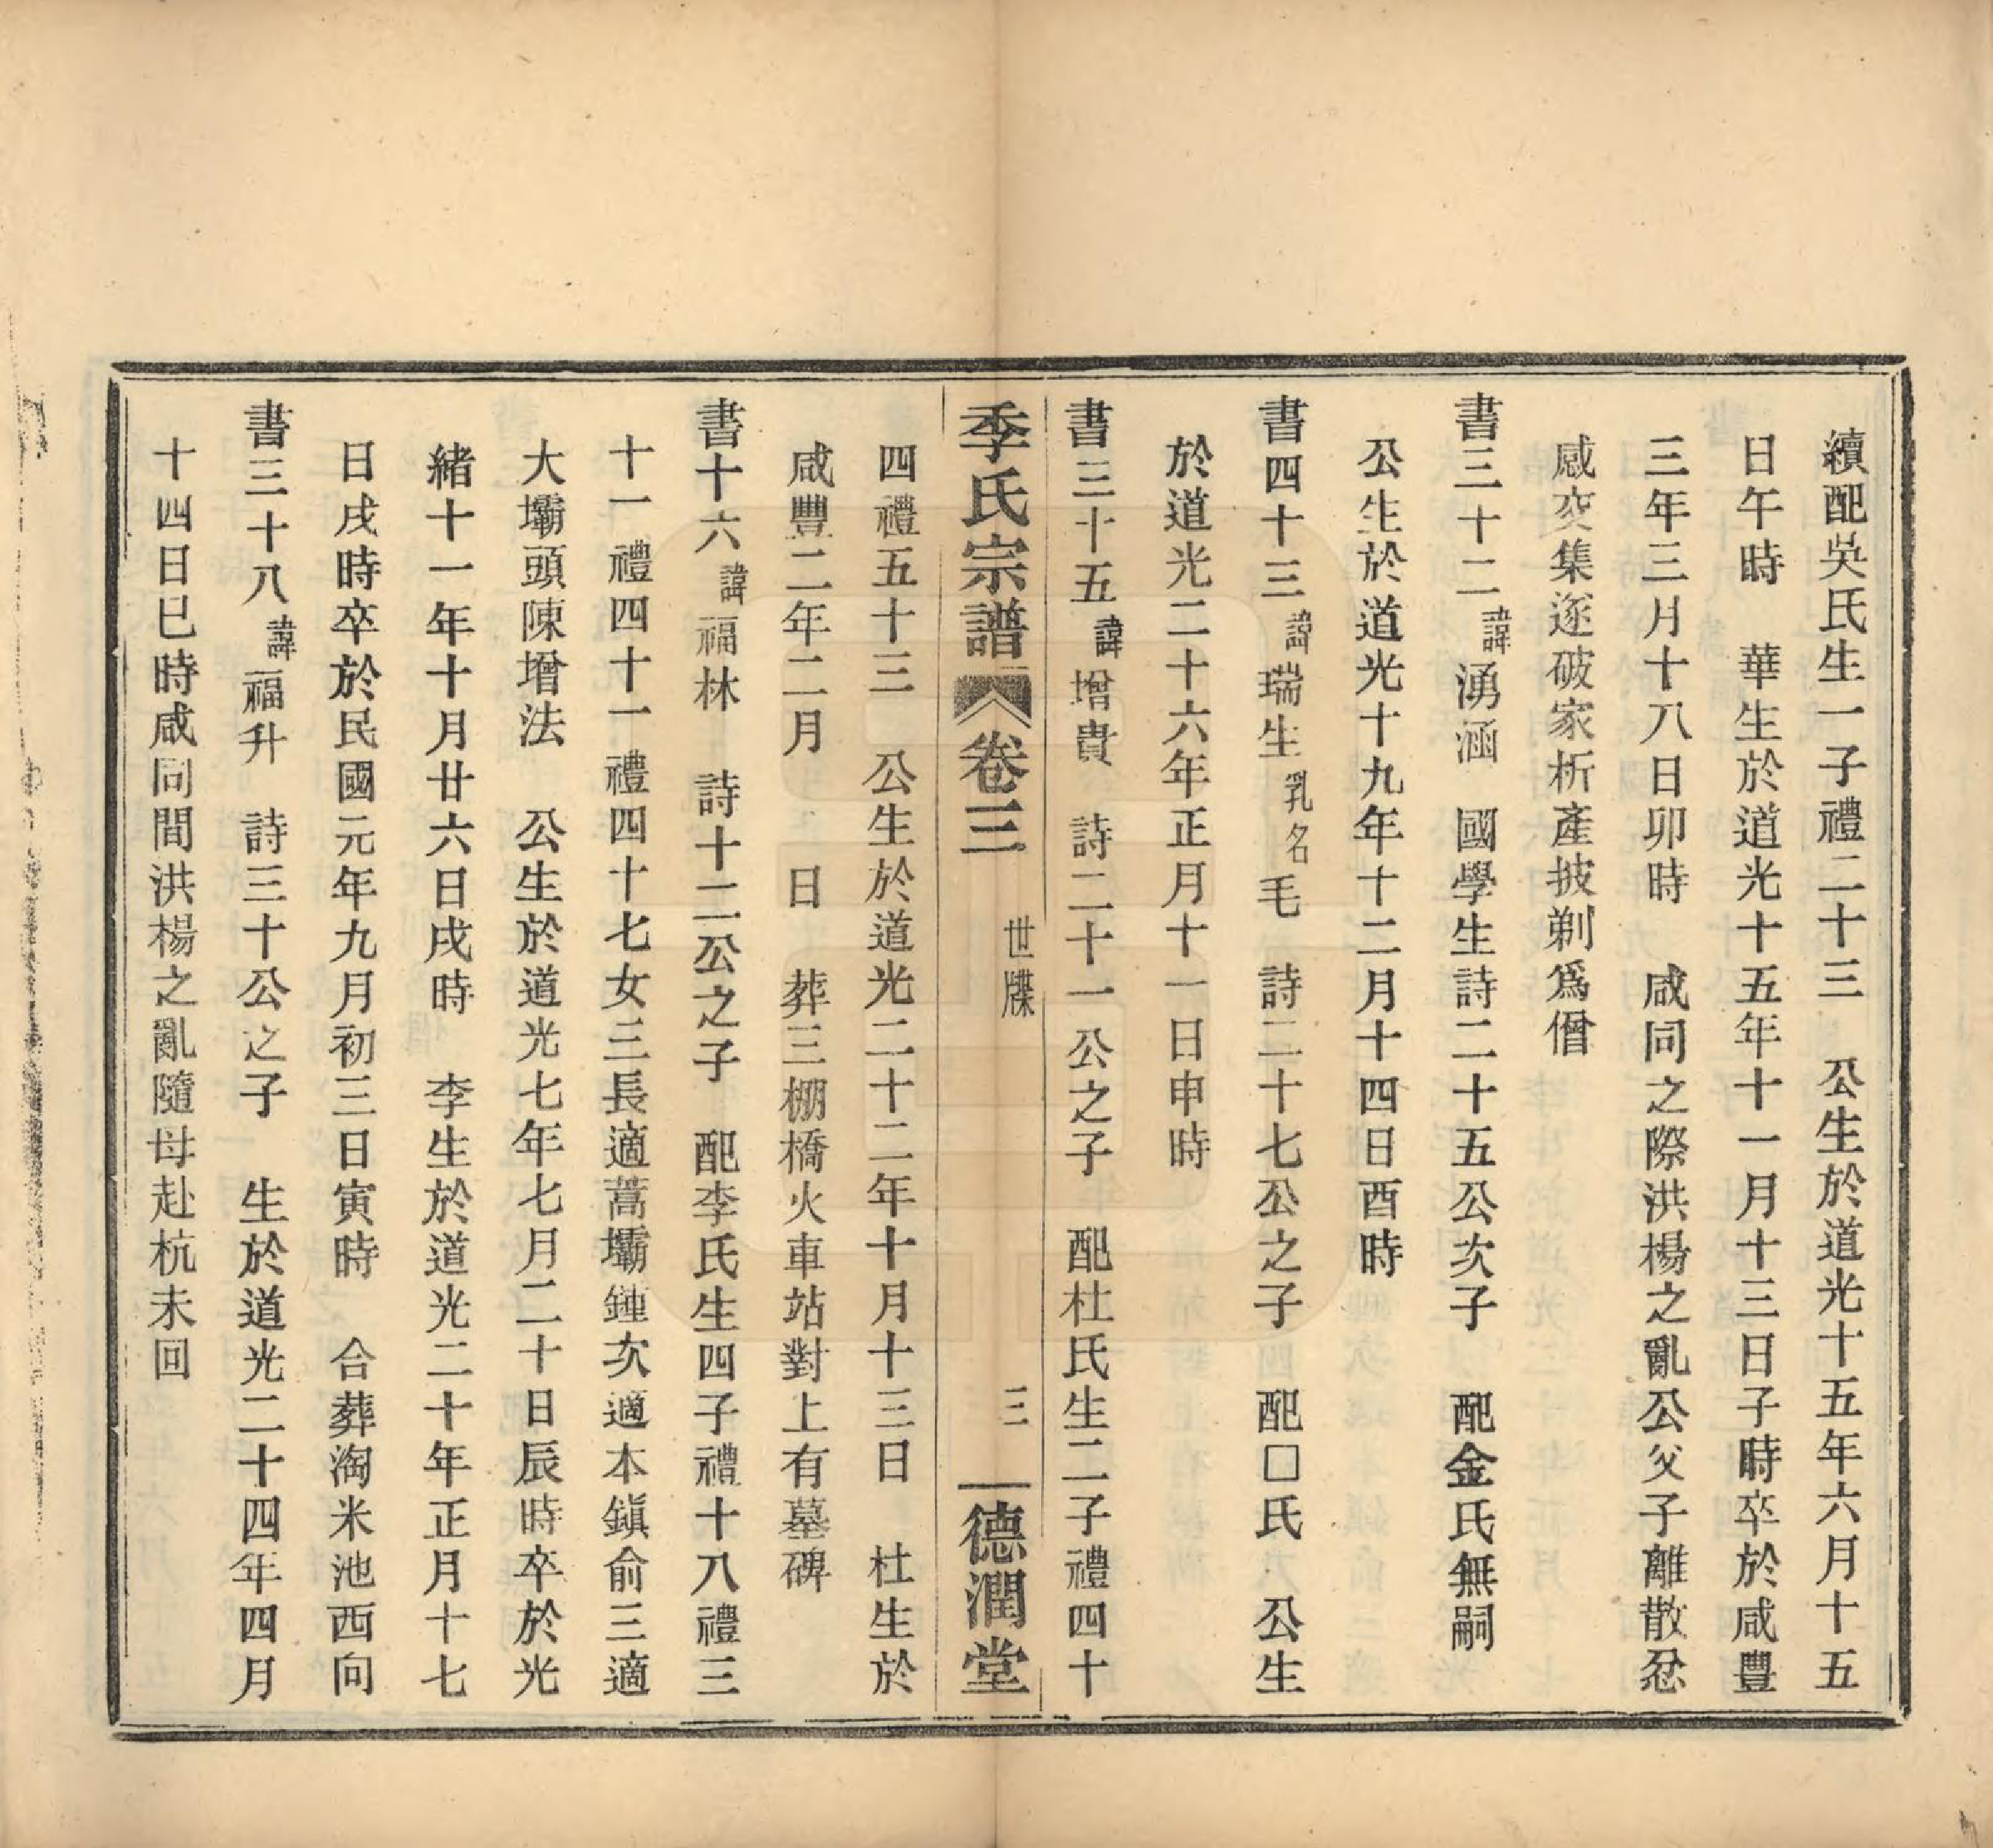 續配吳氏生一子禮二十三　公生於道光十五年六月十五
日午時　華生於道光十五年十一月十三日子時卒於咸豐
三年三月十八日卯時　咸同之際洪楊之亂公父子離散忿
慼交集遂破家析產披剃爲僧
書三十二諱湧涵　國學生詩二十五公次子　配金氏無嗣
公生於道光十九年十二月十四日酉時
書四十三諱瑞生乳名毛　詩二十七公之子　配□氏　公生
於道光二十六年正月十一日申時
書三十五諱增貴　詩二十一公之子　配杜氏生二子禮四十
季氏宗譜　卷三　世牒　三　德潤堂
四禮五十三　公生於道光二十二年十月十三日　杜生於
咸豐二年二月　日　葬三棚橋火車站對上有墓碑
書十六諱福林　詩十二公之子　配李氏生四子禮十八禮三
十一禮四十一禮四十七女三長適蒿壩鍾次適本鎭俞三適
大壩頭陳增法　公生於道光七年七月二十日辰時卒於光
緒十一年十月廿六日戌時　李生於道光二十年正月十七
日戌時卒於民國元年九月初三日寅時　合葬淘米池西向
書三十八諱福升　詩三十公之子　生於道光二十四年四月
十四日巳時咸同間洪楊之亂隨母赴杭未回